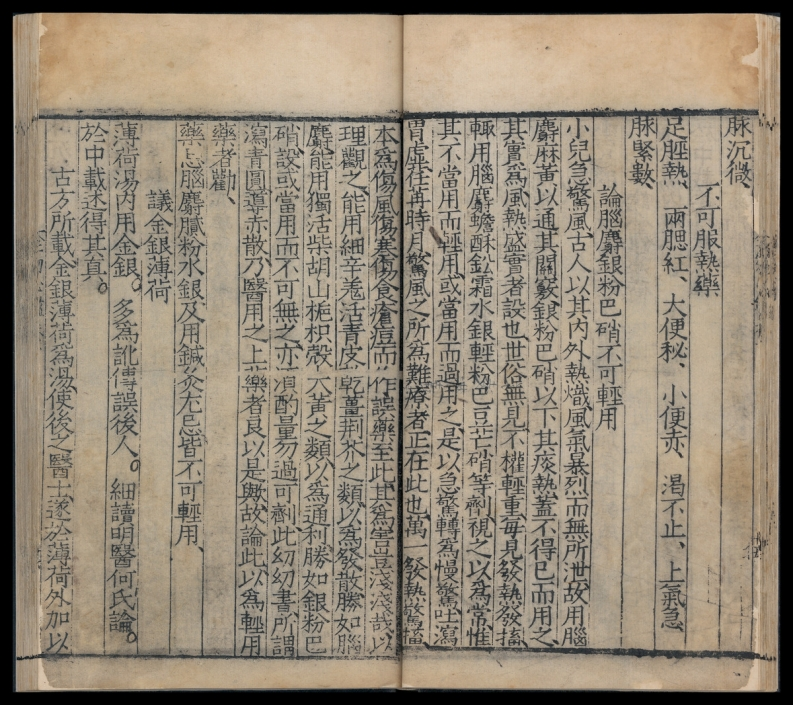 脉沉微、
不可服熱藥
足脛熱、兩腮紅、大便秘、小便赤、渴不止、上氣急
脉緊數、
論腦麝銀粉巴硝不可輕用
小兒急驚風、古人以其内外熱熾、風氣暴烈而無所泄、故用腦
麝麻黄以通其關竅、銀粉巴硝以下其痰熱、蓋不得已而用之、
其實爲風熱盛實者設也、世俗無見、不權輕重、每見發熱發搐、
輙用腦麝蟾酥鈆霜水銀輕粉巴豆芒硝等劑、視之以爲常、惟
其不當用而輕用、或當用而過用之、是以急驚轉爲慢驚、吐瀉
胃虛荏苒時月、驚風之所爲難療者、正在此也、萬一發熱驚搐
本爲傷風傷寒傷食瘡痘而作、誤藥至此、其爲害豈淺淺哉、以
理觀之、能用細辛羗活青皮乾薑荆芥之類以爲發散、勝如腦
麝、能用獨活柴胡山梔枳殼大黄之類以爲通利、勝如銀粉巴
硝、設或當用而不可無之、亦須酌量勿過可劑、此幼幼書所謂
瀉青圓導赤散乃醫用之上藥者、良以是歟、故論此以爲輕用
藥者勸、
藥忌腦麝膩粉水銀、及用鍼灸尤忌、皆不可輕用、
議金銀薄荷
薄荷湯内用金銀。多爲訛傳誤後人。細讀明醫何氏論。
於中載述得其真。
古方所載金銀薄荷爲湯使、後之醫士、遂於薄荷外加以